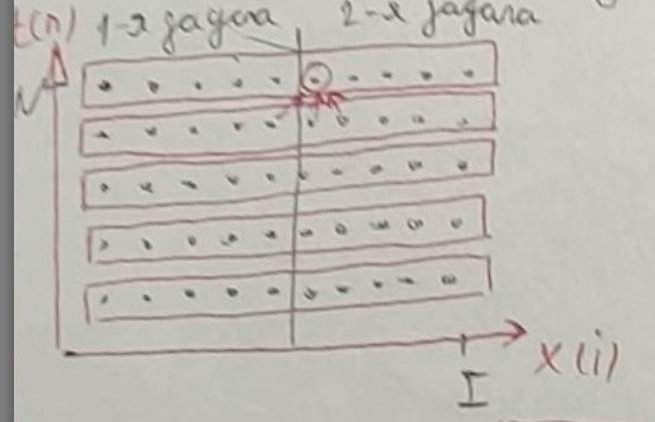 t(n) 1-я задача 2-я задача
N
x(i)
I